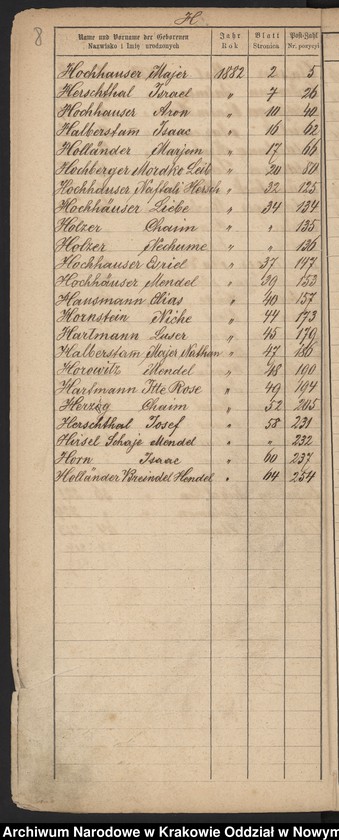 H.
8
Name und Vorname der Geborenen Jahr Blatt Post-Zahl
Nazwisko i Imię urodzonych Rok Stronica Nr. pozycyi
Hochhauser Majer 1882 2 5
Herschthal Israel " 7 26
Hochhauser Aron " 10 40
Halberstam Isaac " 16 62
Holländer Marjem " 17 66
Hochberger Mordko Leib " 20 80
Hochhauser Naftali Hersch " 32 125
Hochhäuser Liebe " 34 134
Holzer Chaim " " 135
Holzer Nechume " " 136
Hochhauser Esriel " 37 147
Hochhäuser Mendel " 39 153
Hausmann Elias " 40 157
Hornstein Niche " 44 173
Hartmann Luser " 45 179
Halberstam Majer Nathan " 47 186
Horewitz Mendel " 48 190
Hartmann Itte Rose " 49 194
Herzog Chaim " 52 205
Herschthal Josef " 58 231
Hirsel Schaje Mendel " " 232
Horn Isaac " 60 237
Holländer Breindel Hendel " 64 254
Archiwum Narodowe w Krakowie Oddział w Nowym